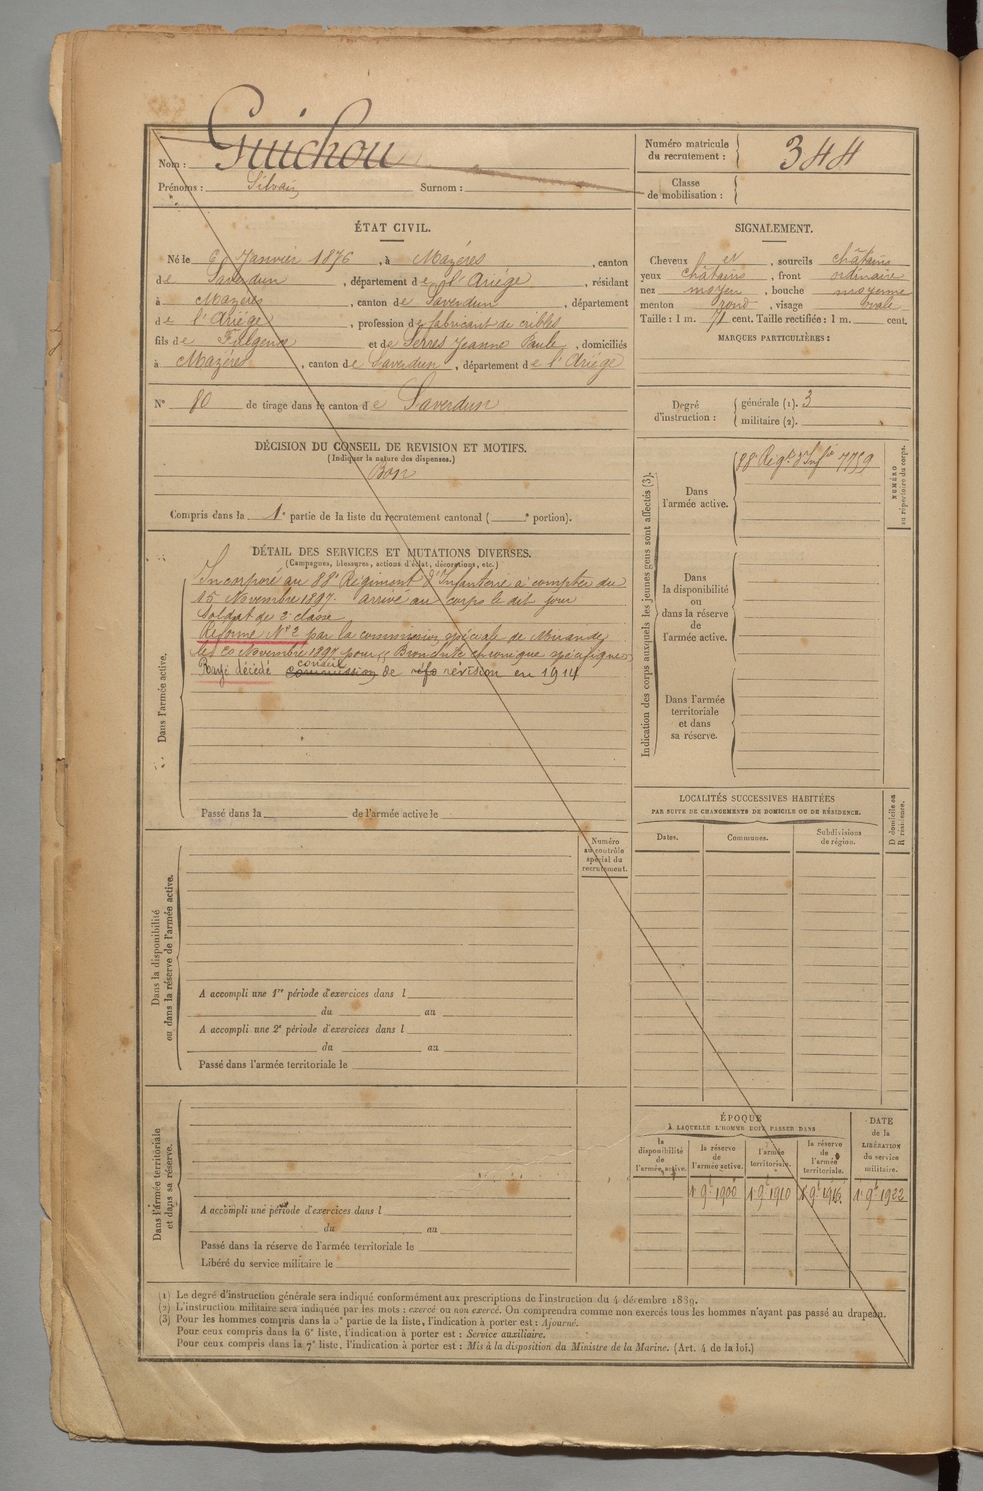 Nom : Guichou
Prénoms : Silvain Surnom :
Numéro matricule du recrutement : 344
Classe de mobilisation :
ÉTAT CIVIL.
Né le 6 Janvier 1876, à Mazéres, canton
de Saverdun, département de l'Ariége, résidant
à Mazéres, canton de Saverdun, département
de l'Ariége, profession de fabricant de cribles
fils de Fulgence et de Serres Jeanne Paule, domiciliés
à Mazéres, canton de Saverdun, département de l'Ariége
N° 80 de tirage dans le canton de Saverdun
DÉCISION DU CONSEIL DE REVISION ET MOTIFS.
(Indiquer la nature des dispenses.)
Bon
Compris dans la 1e partie de la liste du recrutement cantonal ( e portion).
DÉTAIL DES SERVICES ET MUTATIONS DIVERSES.
(Campagnes, blessures, actions d'éclat, décorations, etc.)
Dans l'armée active.
Incorporé au 88e Régiment d'Infanterie à compter du
15 Novembre 1897. arrivé au corps le dit jour
Soldat de 2e classe
Réformé N° 2 par la commission spéciale de Mirande
le 20 Novembre 1897 pour "Bronchite chronique spécifique"
Rayé décédé commission conseil de réfo révision en 1914
Passé dans la de l'armée active le
Dans la disponibilité
ou dans la réserve de l'armée active.
Numéro
au contrôle
spécial du
recrutement.
A accompli une 1re période d'exercices dans l
du au
A accompli une 2e période d'exercices dans l
du au
Passé dans l'armée territoriale le
Dans l'armée territoriale
et dans sa réserve.
A accompli une période d'exercices dans l
du au
Passé dans la réserve de l'armée territoriale le
Libéré du service militaire le
SIGNALEMENT.
Cheveux et, sourcils châtains
yeux châtains, front ordinaire
nez moyen, bouche moyenne
menton rond, visage ovale
Taille : 1 m. 71 cent. Taille rectifiée : 1 m. cent.
MARQUES PARTICULIÈRES :
Degré d'instruction : générale (1). 3
militaire (2).
Indication des corps auxquels les jeunes gens sont affectés (3).
NUMÉRO
au répertoire du corps.
Dans
l'armée active.
88e Régt d'Infie 7759
Dans
la disponibilité
ou
dans la réserve
de
l'armée active.
Dans l'armée
territoriale
et dans
sa réserve.
LOCALITÉS SUCCESSIVES HABITÉES
PAR SUITE DE CHANGEMENTS DE DOMICILE OU DE RÉSIDENCE.
Dates. Communes. Subdivisions de région.
D domicile ou
R résidence.
ÉPOQUE
À LAQUELLE L'HOMME DOIT PASSER DANS
la disponibilité de l'armée active.
la réserve de l'armée active.
l'armée territoriale.
la réserve de l'armée territoriale.
DATE de la LIBÉRATION du service militaire.
1 9bre 1900 1 9bre 1910 1 9bre 1916 1 9bre 1922
(1) Le degré d'instruction générale sera indiqué conformément aux prescriptions de l'instruction du 4 décembre 1889.
(2) L'instruction militaire sera indiquée par les mots : exercé ou non exercé. On comprendra comme non exercés tous les hommes n'ayant pas passé au drapeau.
(3) Pour les hommes compris dans la 5e partie de la liste, l'indication à porter est : Ajourné.
Pour ceux compris dans la 6e liste, l'indication à porter est : Service auxiliaire.
Pour ceux compris dans la 7e liste, l'indication à porter est : Mis à la disposition du Ministre de la Marine. (Art. 4 de la loi.)